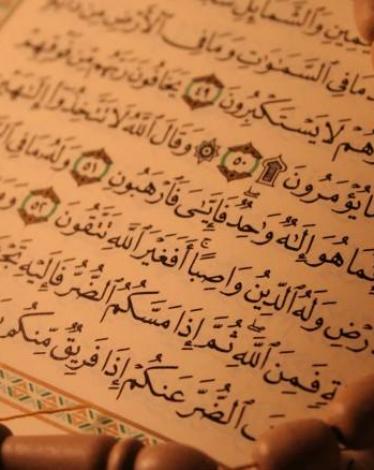 وَٱلشَّمَآئِلِ
مَا فِى ٱلسَّمَٰوَٰتِ وَمَا فِى ٱلْأَرْضِ مِن
وَهُمْ لَا يَسْتَكْبِرُونَ ٤٩ يَخَافُونَ رَبَّهُم مِّن فَوْقِهِمْ
مَا يُؤْمَرُونَ ۩ ٥٠ ۞ وَقَالَ ٱللَّهُ لَا تَتَّخِذُوٓا۟ إِلَٰهَيْنِ
إِنَّمَا هُوَ إِلَٰهٌ وَٰحِدٌ فَإِيَّٰىَ فَٱرْهَبُونِ ٥١ وَلَهُۥ مَا فِى
رْضِ وَلَهُ ٱلدِّينُ وَاصِبًا أَفَغَيْرَ ٱللَّهِ تَتَّقُونَ ٥٢
ةٍ فَمِنَ ٱللَّهِ ثُمَّ إِذَا مَسَّكُمُ ٱلضُّرُّ فَإِلَيْهِ
ٱلضُّرَّ عَنكُمْ إِذَا فَرِيقٌ مِّنكُم